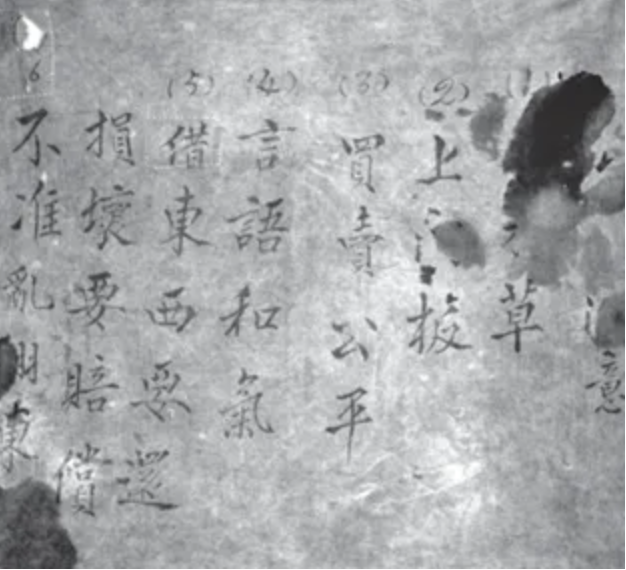 意
草
(2) 上 板
(3) 買賣公平
(4) 言語和氣
(5) 借東西要還
損壞要賠償
6 不准亂用東